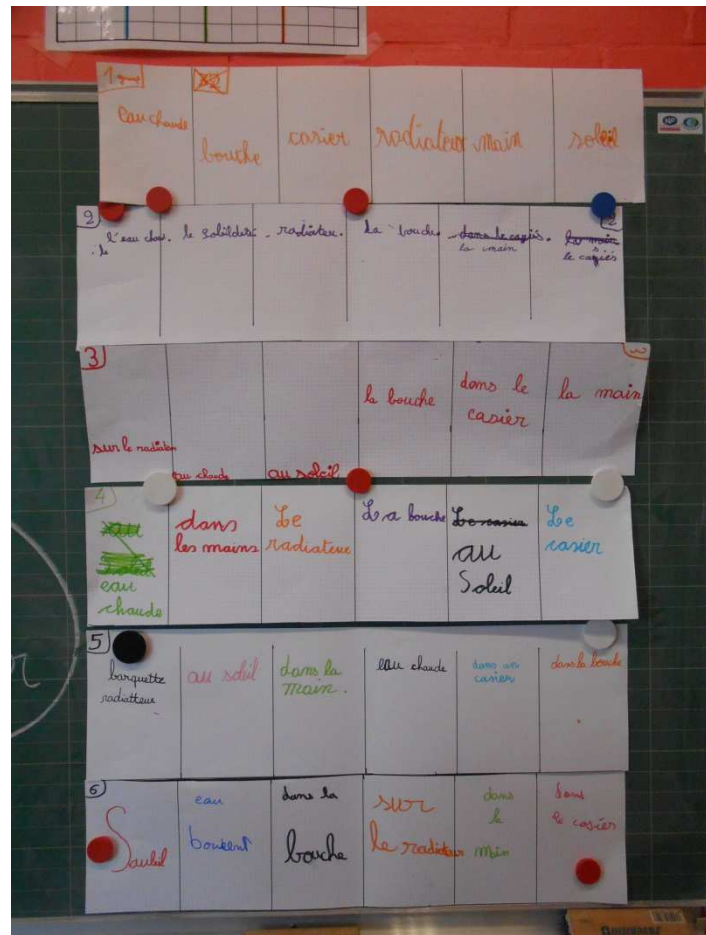 1
eau chaude
bouche
casier
radiateur
main
soleil
2
l'eau chau.
le
radiateur.
la bouche
dans le
la main
2
la main
le casiés
3
sur le radiateur
au chaude
au soleil
la bouche
dans le
casier
la main
3
4
eau
chaude
dans
les mains
Le
radiateur
La bouche
Le casier
au
Soleil
Le
casier
5
barquette
radiatteur
au soleil
dans la
main.
eau chaude
dans un
casier
dans la bouche
6
Sauleil
eau
dans la
bouche
sur
le radiateur
dans
le
main
dans
le casier